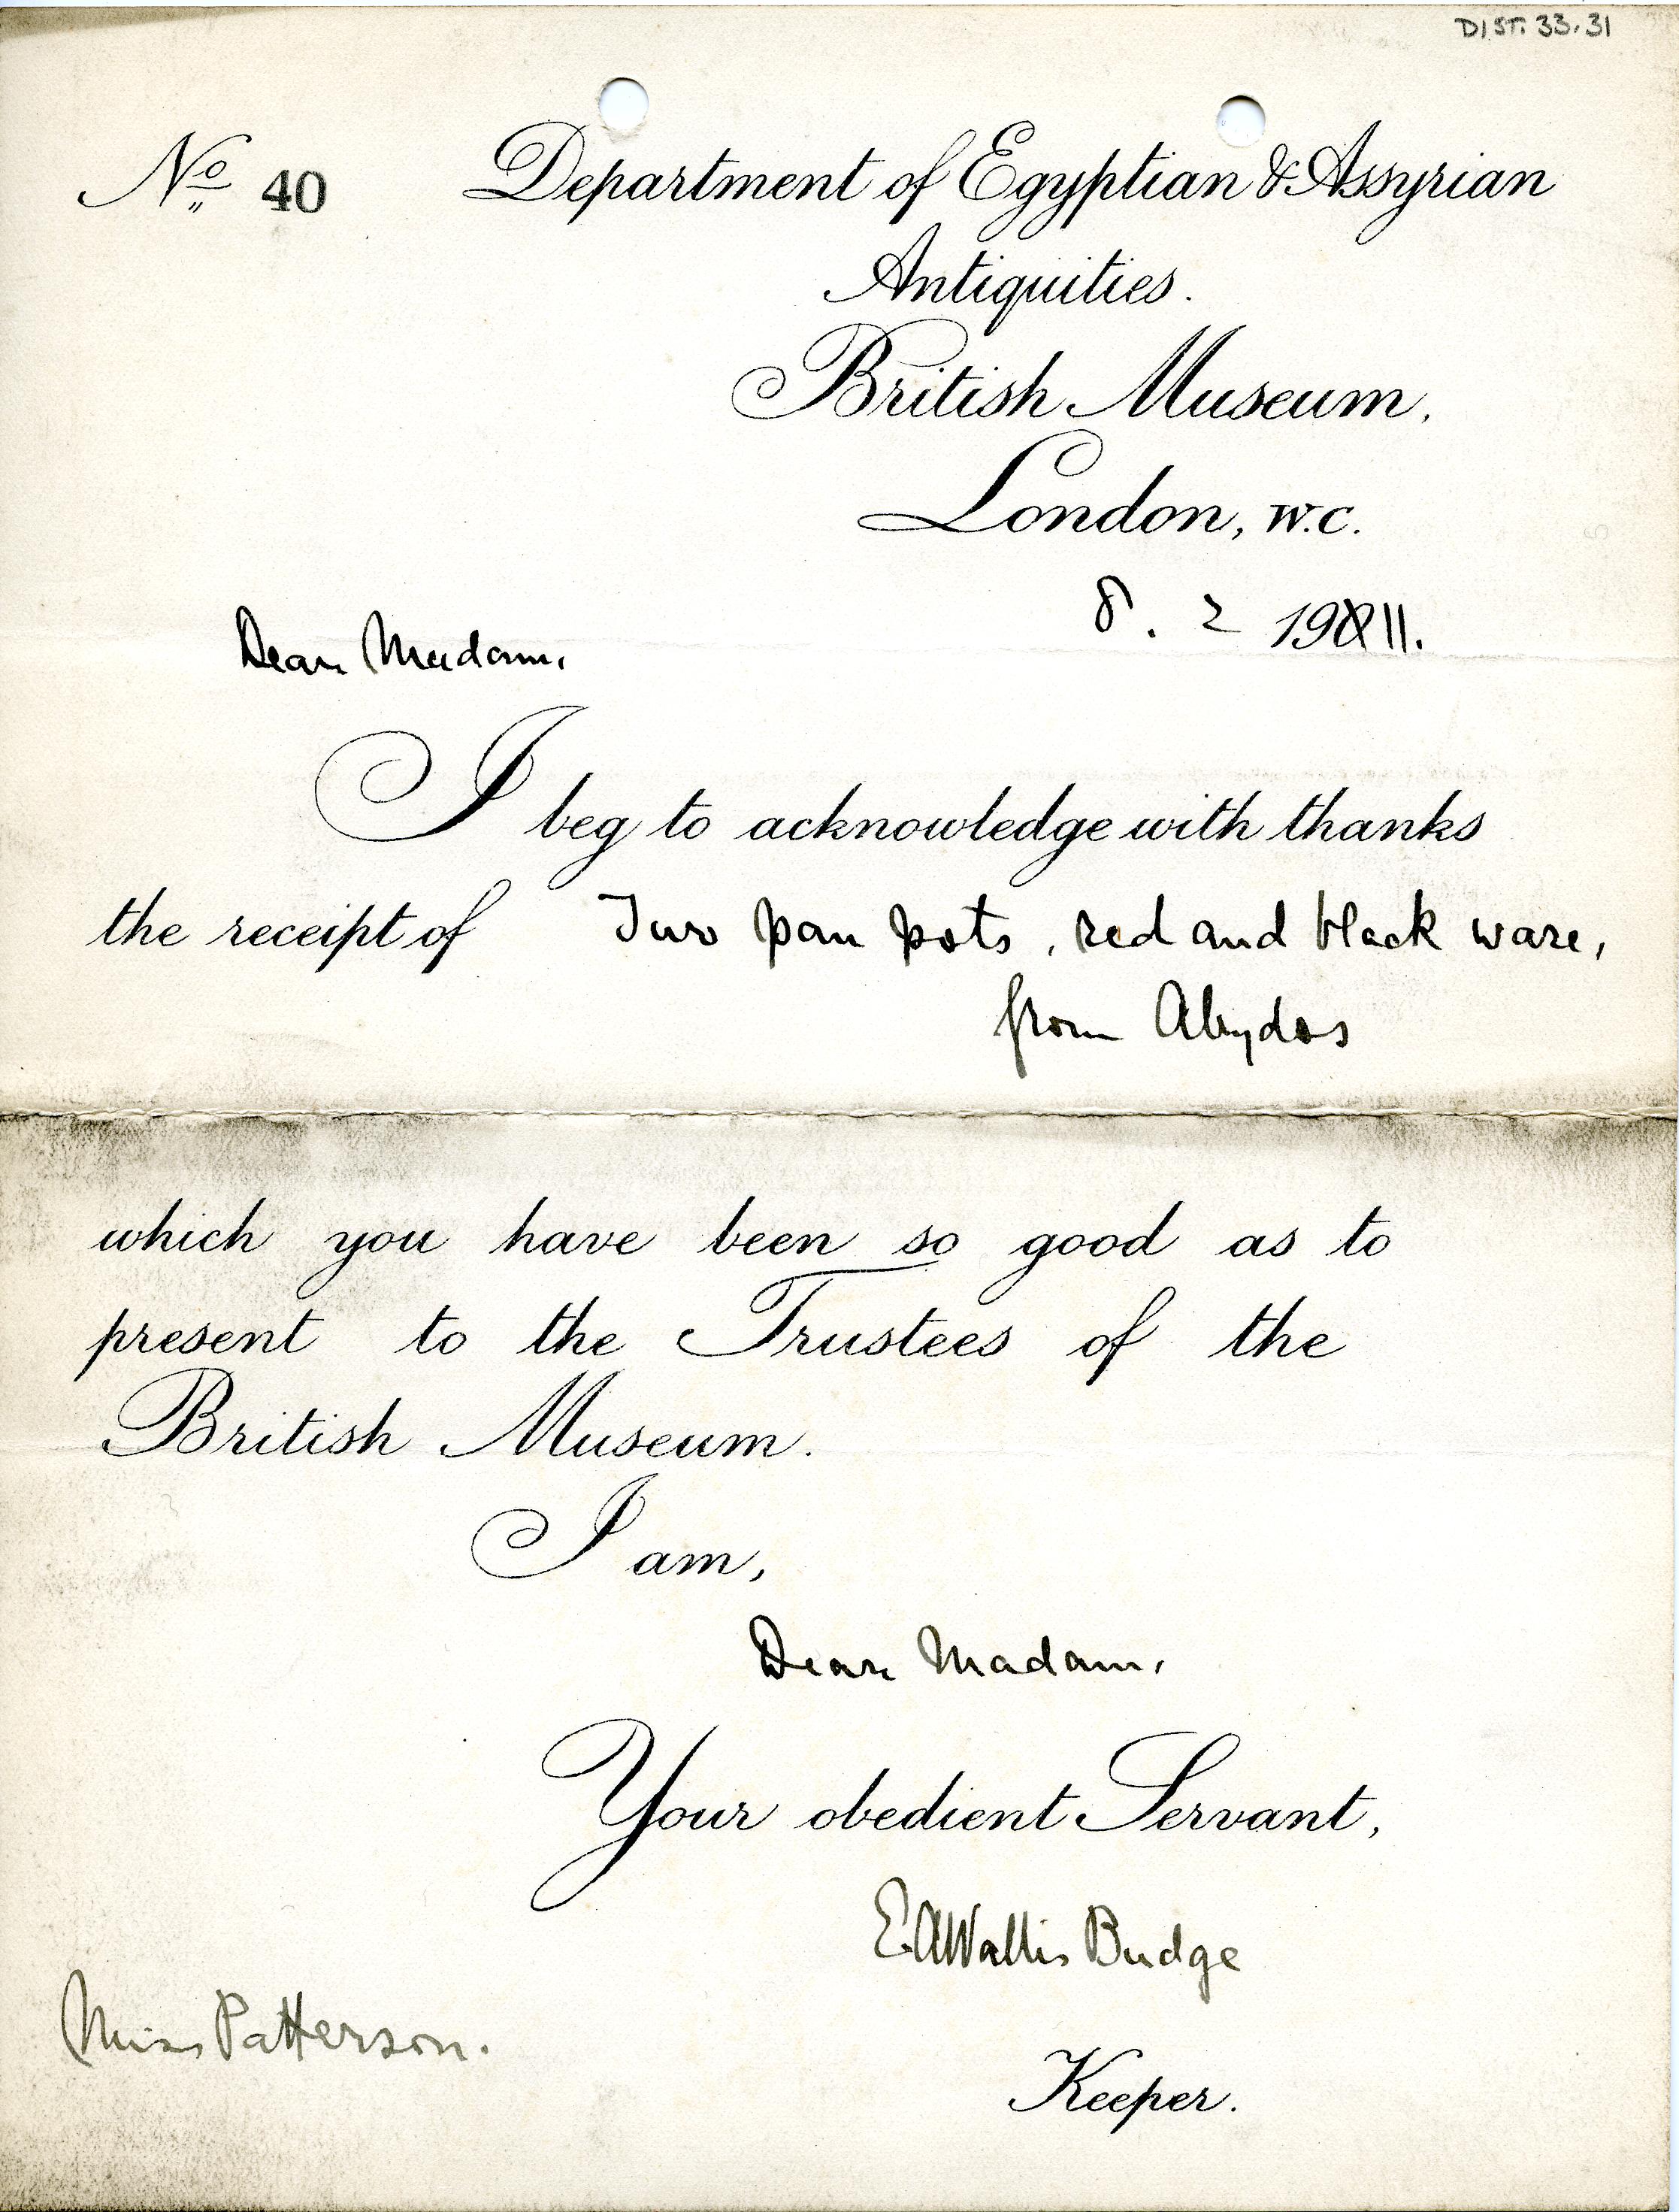 DIST. 33.31
No 40 Department of Egyptian & Assyrian
Antiquities.
British Museum.
London, W.C.
8. 2 1911.
Dear Madam,
I beg to acknowledge with thanks
the receipt of Two pan pots, red and black ware,
from Abydos
which you have been so good as to
present to the Trustees of the
British Museum.
I am,
Dear Madam,
Your obedient Servant,
E.A Wallis Budge
Miss Patterson.
Keeper.